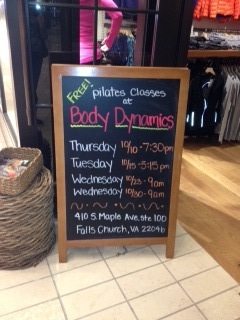 FREE!
pilates Classes
at
Body Dynamics
Thursday 10/10 - 7:30pm
Tuesday 10/15 - 5:15pm
Wednesday 10/23 - 9am
Wednesday 10/30 - 9am
410 S. Maple Ave. Ste 100
Falls Church, VA 22046